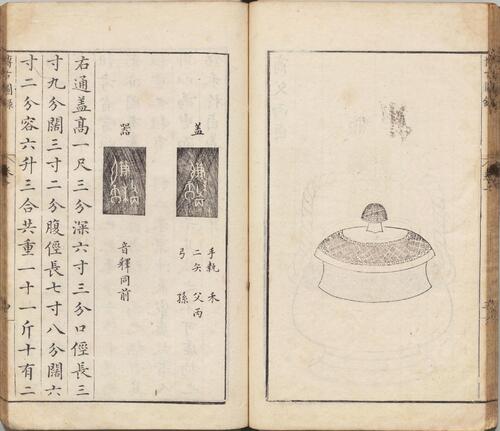 盖
手執 禾
二矢 父丙
弓 孫
器
音釋同前
右通盖高一尺三分深六寸三分口徑長三
寸九分闊三寸二分腹徑長七寸八分闊六
寸二分容六升三合共重一十一斤十有二